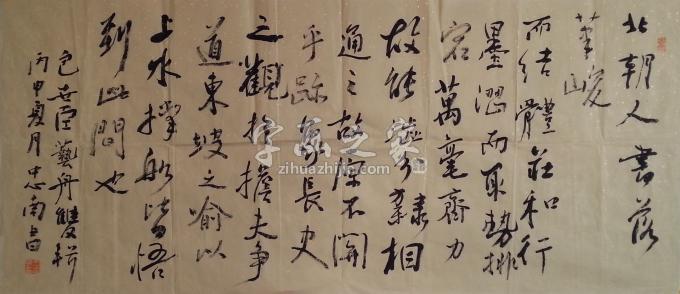 北朝人書落
筆峻
而結體莊和行
墨澀而取勢排
宕萬毫齊力
故能峻分篆隸相
通之故原不關
乎跡象長史
之觀于擔夫爭
道東坡之喻以
上水撐船皆悟
到此間也
包世臣藝舟雙楫
丙申夏月忠南書
字画之家
zihuazhijia.com